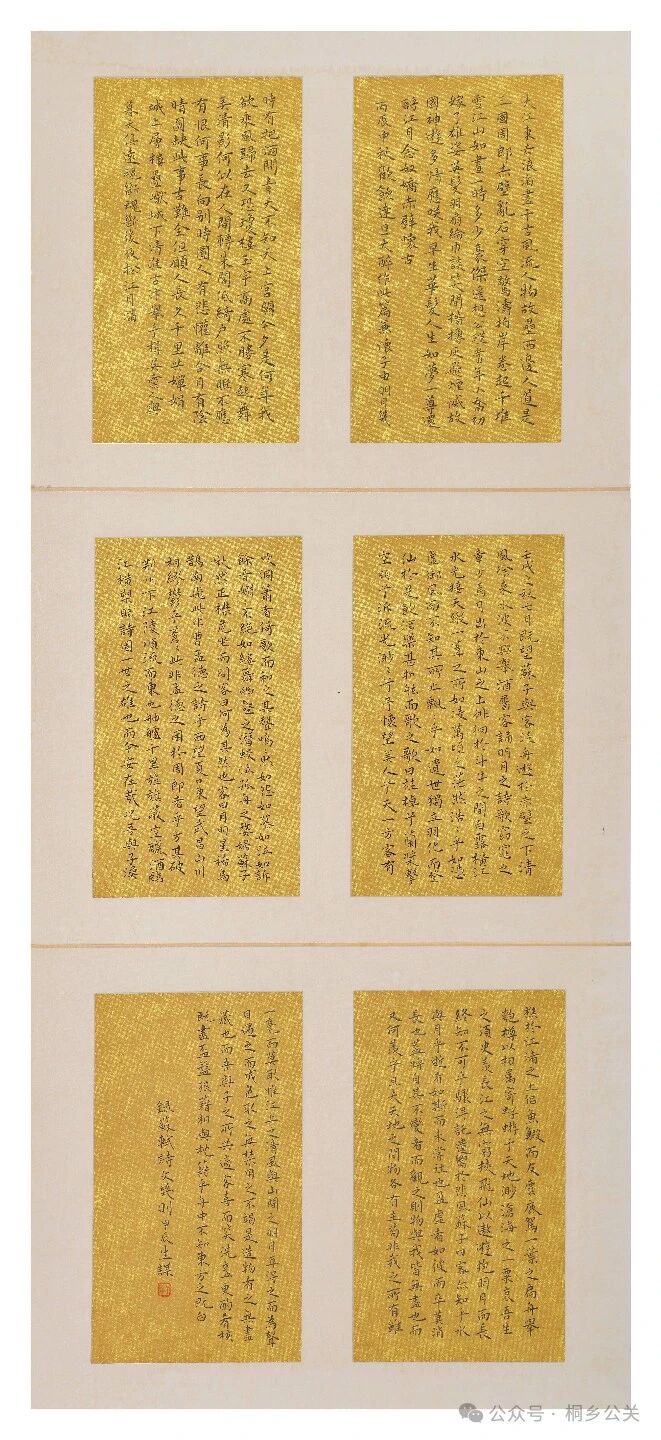 大江東去浪淘盡千古風流人物故壘西邊人道是
三國周郎赤壁亂石穿空驚濤拍岸卷起千堆
雪江山如畫一時多少豪傑遙想公瑾當年小喬初
嫁了雄姿英發羽扇綸巾談笑間檣櫓灰飛煙滅故
國神遊多情應笑我早生華髮人生如夢一尊還
酹江月念奴嬌赤壁懷古
丙辰中秋歡飲達旦大醉作此篇兼懷子由明月幾
時有把酒問青天不知天上宮闕今夕是何年我
欲乘風歸去又恐瓊樓玉宇高處不勝寒起舞
弄清影何似在人間轉朱閣低綺戶照無眠不應
有恨何事長向別時圓人有悲懽離合月有陰
晴圓缺此事古難全但願人長久千里共嬋娟
城上層樓疊巘城下清淮古汴舉手揖吳雲人與
暮天俱遠魂斷魂斷後夜松江月滿
壬戌之秋七月既望蘇子與客泛舟遊於赤壁之下清
風徐來水波不興舉酒屬客誦明月之詩歌窈窕之
章少焉月出於東山之上徘徊於斗牛之間白露橫江
水光接天縱一葦之所如凌萬頃之茫然浩浩乎如馮
虛御風而不知其所止飄飄乎如遺世獨立羽化而登
仙於是飲酒樂甚扣舷而歌之歌曰桂棹兮蘭槳擊
空明兮泝流光渺渺兮予懷望美人兮天一方客有
吹洞簫者倚歌而和之其聲嗚嗚然如怨如慕如泣如訴
餘音嫋嫋不絕如縷舞幽壑之潛蛟泣孤舟之嫠婦蘇子
愀然正襟危坐而問客曰何為其然也客曰月明星稀烏
鵲南飛此非曹孟德之詩乎西望夏口東望武昌山川
相繆鬱乎蒼蒼此非孟德之困於周郎者乎方其破
荊州下江陵順流而東也舳艫千里旌旗蔽空釃酒臨
江橫槊賦詩固一世之雄也而今安在哉況吾與子漁
樵於江渚之上侶魚蝦而友麋鹿駕一葉之扁舟舉
匏樽以相屬寄蜉蝣于天地渺滄海之一粟哀吾生
之須臾羨長江之無窮挾飛仙以遨遊抱明月而長
終知不可乎驟得託遺響於悲風蘇子曰客亦知夫水
與月乎逝者如斯而未嘗往也盈虛者如彼而卒莫消
長也蓋將自其不變者而觀之則物與我皆無盡也而
又何羨乎且夫天地之間物各有主苟非我之所有雖
一毫而莫取惟江上之清風與山間之明月耳得之而為聲
目遇之而成色取之無禁用之不竭是造物者之無盡
藏也而吾與子之所共適客喜而笑洗盞更酌肴核
既盡杯盤狼藉相與枕藉乎舟中不知東方之既白
錄蘇軾詩文幾則甲辰生謀
公众号·桐乡公关